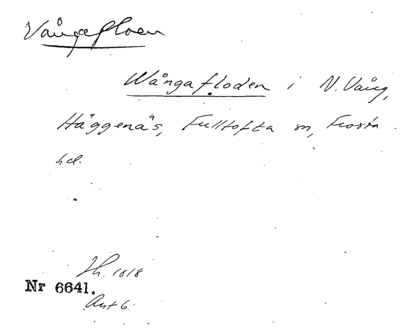 Vångafloden
Wångafloden i N. Vång,
Häggenäs, Fulltofta sn, Frosta
hd.
Jh. 1818
Nr 6641.
Ant 6.